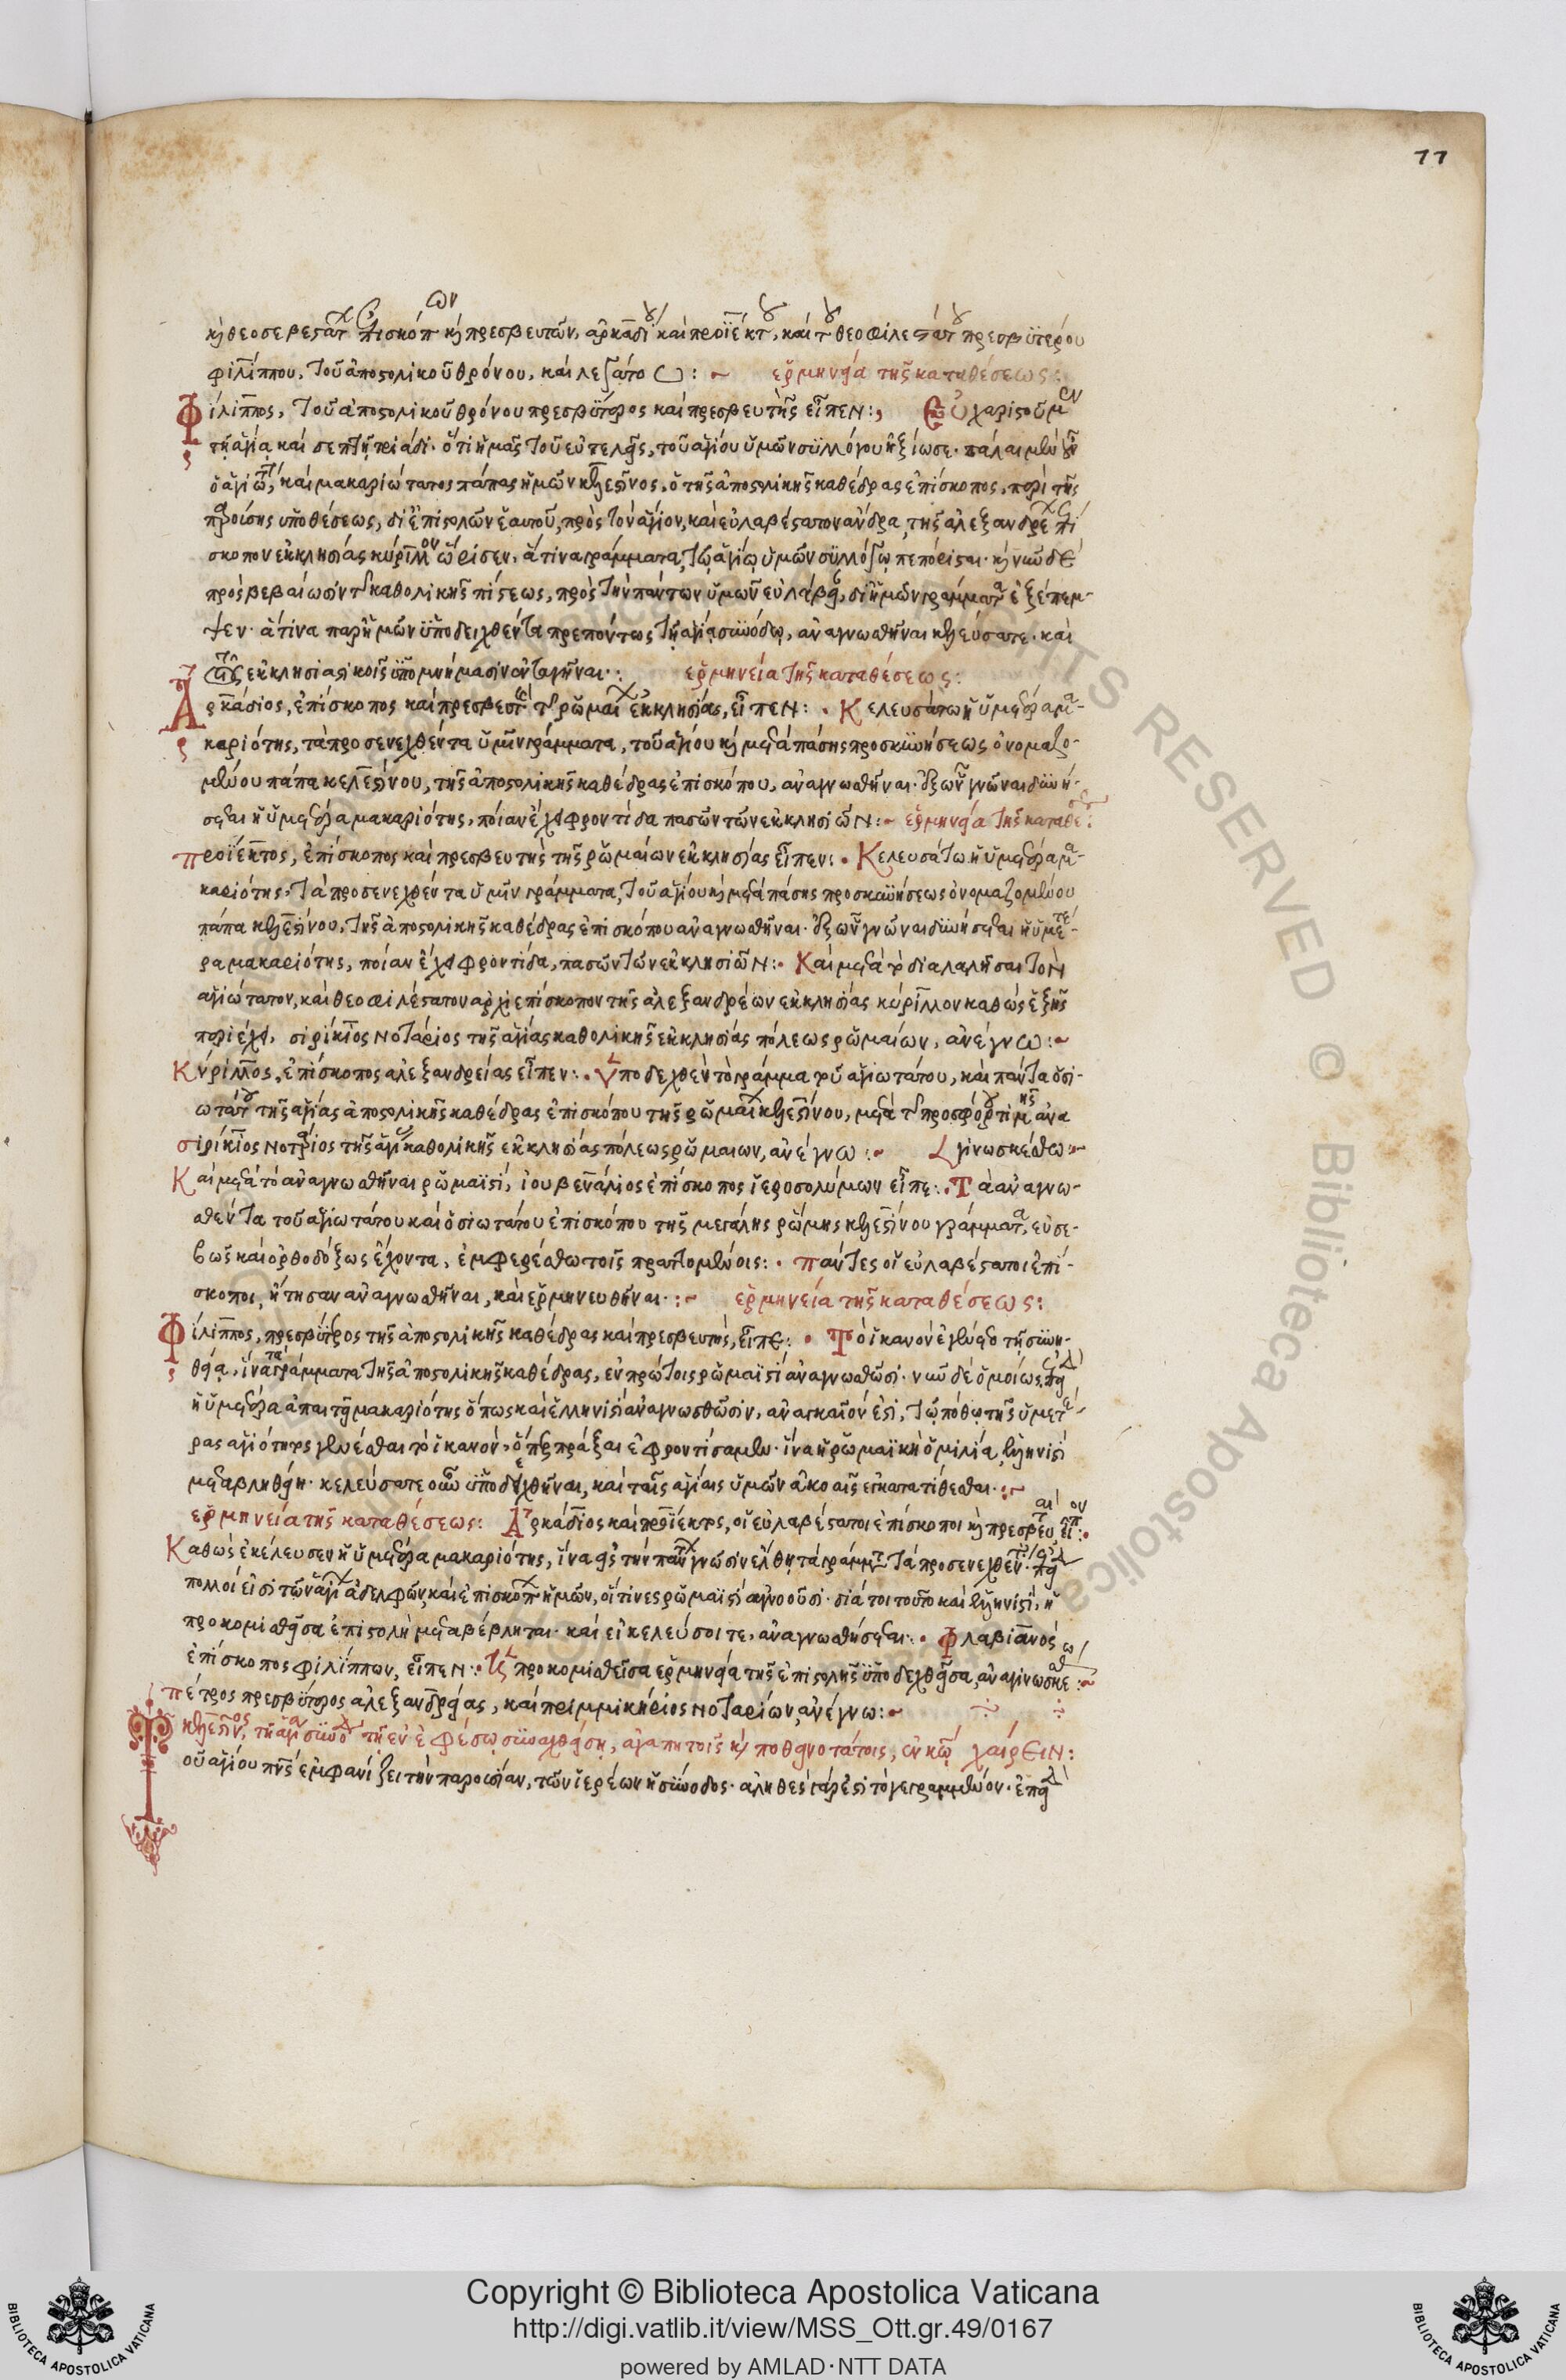 77
κὴ θεοσεβεστάτ ἐπισκόπ κὴ πρεσβευτῶν, ἀρκαδί καὶ προϊέκτ, καὶ τ θεοφιλεστάτ πρεσβϋτέρου
φιλίππου, τοῦ ἀποστολικοῦ θρόνου, καὶ λεξάτω : ~ ἑρμηνεία τῆς καταθέσεως:
Φίλιππος, τοῦ ἀποστολικοῦ θρόνου πρεσβύτερος καὶ πρεσβευτὴς εἶπεν: Εὐχαριστοῦμεν
τῇ ἁγίᾳ καὶ σεπτῇ τριάδι. ὅτι ἡμᾶς τοῦς εὐτελεῖς, τοῦ ἁγίου ὑμῶν συλλόγου ἠξίωσε. πάλαι μὲν οὖν
ὁ ἁγιώτ, καὶ μακαριώτατος πάπας ἡμῶν κελεστῖνος, ὁ τῆς ἀποστολικῆς καθέδρας ἐπίσκοπος, περὶ τῆς
παροίσης ὑποθέσεως, δι' ἐπιστολῶν ἑαυτοῦ, πρὸς τὸν ἅγιον, καὶ εὐλαβέστατον ἄνδρα, τῆς ἀλεξανδρέων ἐπί
σκοπον ἐκκλησίας κύριλλον ὥρισεν, ἅτινα γράμματα, τῷ ἁγίῳ ὑμῶν συλλόγῳ πεπόρισται. κὴ νῦν δὲ
πρὸς βεβαίωσιν τῆς καθολικῆς πίστεως, πρὸς τὴν πάντων ὑμῶν εὐλάβειαν, δι' ἡμῶν γράμματα ἐξέπεμ-
ψεν. ἅτινα παρ' ἡμῶν ὑποδειχθέντα πρεπόντως τῇ ἁγίᾳ συνόδῳ, ἀναγνωσθῆναι κελεύσατε. καὶ
τοῖς ἐκκλησιαστικοῖς ὑπομνήμασιν ἐνταγῆναι. : ἑρμηνεία τῆς καταθέσεως:
Ἀρκάδιος, ἐπίσκοπος καὶ πρεσβευτ τ ρωμαί ἐκκλησίας, εἶπεν: Κελευσάτω ἡ ὑμετέρα μα-
καριότης, τὰ προσενεχθέντα ὑμῖν γράμματα, τοῦ ἁγίου κὴ μετὰ πάσης προσκυνήσεως ὀνομαζο-
μένου πάπα κελεστίνου, τῆς ἀποστολικῆς καθέδρας ἐπισκόπου, ἀναγνωσθῆναι. ἐξ ὧν γνῶναι δυνή-
σεται ἡ ὑμετέρα μακαριότης, ποίαν ἔχει φροντίδα πασῶν τῶν ἐκκλησιῶν: ~ ἑρμηνεία τῆς καταθέ:
προϊέκτος, ἐπίσκοπος καὶ πρεσβευτὴς τῆς ρωμαίων ἐκκλησίας εἶπεν: Κελευσάτω ἡ ὑμετέρα μα-
καριότης, τὰ προσενεχθέντα ὑμῖν γράμματα, τοῦ ἁγίου κὴ μετὰ πάσης προσκυνήσεως ὀνομαζομένου
πάπα κελεστίνου, τῆς ἀποστολικῆς καθέδρας ἐπισκόπου ἀναγνωσθῆναι. ἐξ ὧν γνῶναι δυνήσεται ἡ ὑμετέ-
ρα μακαριότης, ποίαν ἔχει φροντίδα, πασῶν τῶν ἐκκλησιῶν: Καὶ μετὰ τὸ διαλαλῆσαι τὸν
ἁγιώτατον, καὶ θεοφιλέστατον ἀρχιεπίσκοπον τῆς ἀλεξανδρέων ἐκκλησίας κύριλλον καθὼς ἑξῆς
περιέχει, σιρίκιος νοτάριος τῆς ἁγίας καθολικῆς ἐκκλησίας πόλεως ρωμαίων, ἀνέγνω: ~
Κύριλλος, ἐπίσκοπος ἀλεξανδρείας εἶπεν: Υποδεχθὲν τὸ γράμμα τοῦ ἁγιωτάτου, καὶ πάντα ὁσι-
ωτάτου τῆς ἁγίας ἀποστολικῆς καθέδρας ἐπισκόπου τῆς ρωμαί κελεστίνου, μετὰ τ προσφόρου τιμῆς ἀνα
σιρίκιος νοτάριος τῆς ἁγί καθολικῆς ἐκκλησίας πόλεως ρωμαιων, ἀνέγνω : ~ γινωσκέσθω: ~
Καὶ μετὰ τὸ ἀναγνωσθῆναι ρωμαϊστί, ἰουβενάλιος ἐπίσκοπος ἱεροσολύμων εἶπε: Τὰ ἀναγνω-
σθέντα τοῦ ἁγιωτάτου καὶ ὁσιωτάτου ἐπισκόπου τῆς μεγάλης ρώμης κελεστίνου γράμματα, εὐσε-
βῶς καὶ ὀρθοδόξως ἔχοντα, ἐμφερέσθω τοῖς πραττομένοις: πάντες οἱ εὐλαβέστατοι ἐπί-
σκοποι, ᾔτησαν ἀναγνωσθῆναι, καὶ ἑρμηνευθῆναι. : ~ ἑρμηνεία τῆς καταθέσεως:
Φίλιππος, πρεσβύτερος τῆς ἀποστολικῆς καθέδρας καὶ πρεσβευτής, εἶπε: Τὸ ἱκανὸν ἐγένετο τῇ συνη-
θείᾳ, ἵνα τὰ γράμματα τῆς ἀποστολικῆς καθέδρας, ἐν πρώτοις ρωμαϊστὶ ἀναγνωσθῶσι. νῦν δὲ ὁμοίως, ἐπειδὴ
ἡ ὑμετέρα ἀπαιτεῖ μακαριότης ὅπως καὶ ἑλληνιστὶ ἀναγνωσθῶσιν, ἀναγκαῖόν ἐστι, τῷ πόθῳ τῆς ὑμετέ-
ρας ἁγιότητος γενέσθαι τὸ ἱκανόν, ὅπερ πράξαι ἐφροντίσαμεν. ἵνα ἡ ρωμαϊκὴ ὁμιλία, ἑλληνιστὶ
μεταβληθείη. κελεύσατε οὖν ὑποδεχθῆναι, καὶ ταῖς ἁγίαις ὑμῶν ἀκοαῖς ἐγκατατίθεσθαι. : ~
ἑρμηνεία τῆς καταθέσεως: Ἀρκάδιος καὶ προϊέκτος, οἱ εὐλαβέστατοι ἐπίσκοποι κὴ πρεσβευταὶ εἶπον:
Καθὼς ἐκέλευσεν ἡ ὑμετέρα μακαριότης, ἵνα εἰς τὴν πάντων γνῶσιν ἔλθῃ τὰ γράμματα τὰ προσενεχθέντα. ἐπειδὴ
πολλοί εἰσι τῶν ἁγί ἀδελφῶν, καὶ ἐπισκόπ ἡμῶν, οἵτινες ρωμαϊστὶ ἀγνοοῦσι. διά τοι τοῦτο καὶ ἑλληνιστί, ἡ
προκομισθεῖσα ἐπιστολὴ μεταβέβληται. καὶ εἰ κελεύσοιτε, ἀναγνωσθήσεται: Φλαβιανὸς
ἐπίσκοπος φιλίππων, εἶπεν: προκομισθεῖσα ἑρμηνεία τῆς ἐπιστολῆς ὑποδεχθεῖσα, ἀναγινωσκέσθω: ~
πέτρος πρεσβύτερος ἀλεξανδρείας, καὶ πριμμικήριος νοταρίων, ἀνέγνω: ~
κελεστῖνος, τῇ ἁγίᾳ συνόδῳ τῇ ἐν ἐφέσῳ συναχθείσῃ, ἀγαπητοῖς κὴ ποθεινοτάτοις, ἐν κῶ χαίρειν:
Τοῦ ἁγίου πνς ἐμφανίζει τὴν παρουσίαν, τῶν ἱερέων ἡ σύνοδος. ἀληθὲς γάρ ἐστι τὸ γεγραμμένον. ἐπειδὴ
ALL RIGHTS RESERVED © Biblioteca Apostolica
Copyright © Biblioteca Apostolica Vaticana
http://digi.vatlib.it/view/MSS_Ott.gr.49/0167
powered by AMLAD·NTT DATA
BIBLIOTECA APOSTOLICA VATICANA
BIBLIOTECA APOSTOLICA VATICANA